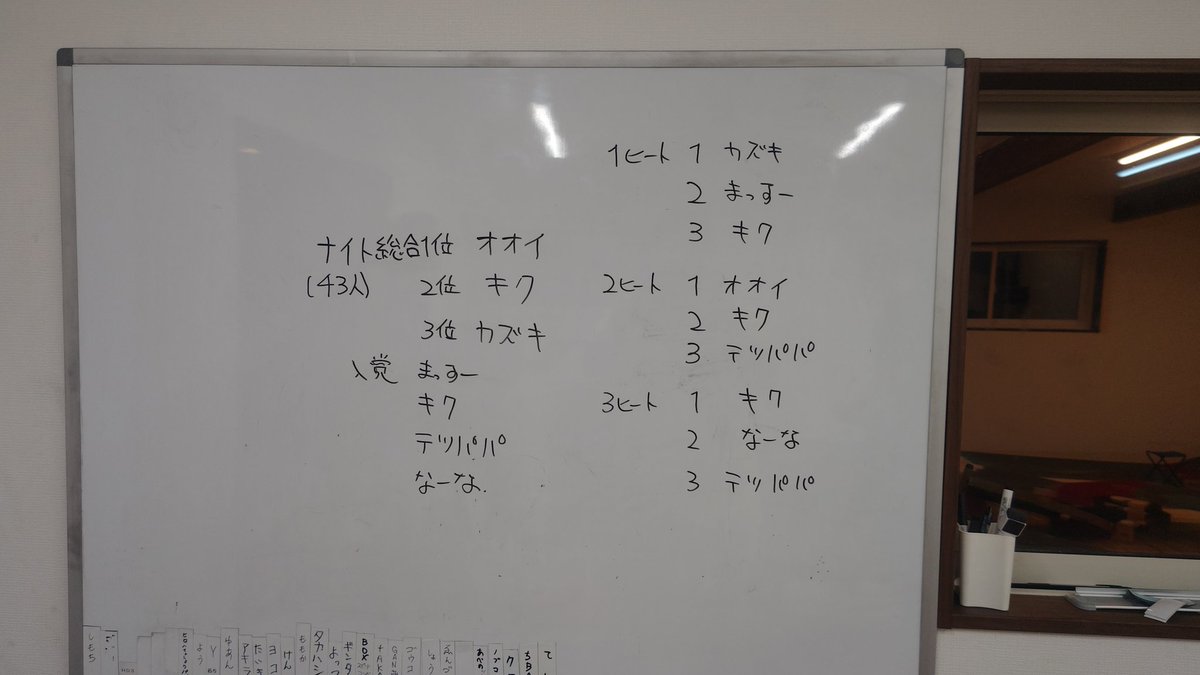 ナイト総合1位 オオイ
(43人) 2位 キク
3位 カズキ
入党 まっすー
キク
テツパパ
なーな
1ヒート 1 カズキ
2 まっすー
3 キク
2ヒート 1 オオイ
2 キク
3 テツパパ
3ヒート 1 キク
2 なーな
3 テツパパ
しもち
よう
Y
ゆあん
アキラ
ヨコ
けん
ももか
タカハシ
よっつ
ギンタ
BOX
ゴウコ
しょう